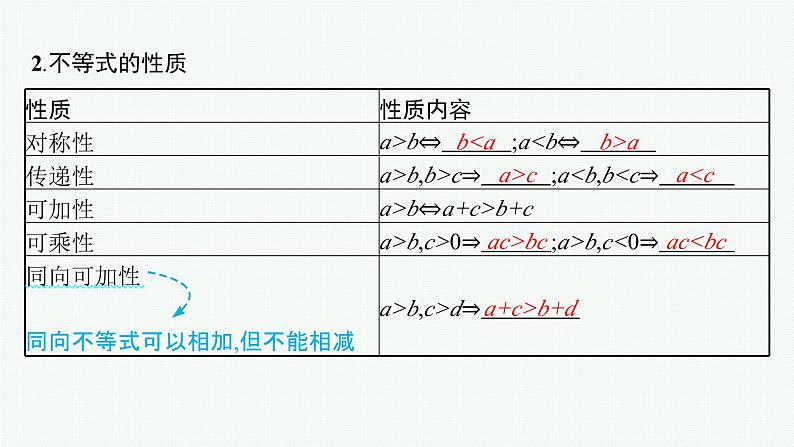 2.不等式的性质
性质 性质内容
对称性 a>b⇔b<a;a<b⇔b>a
传递性 a>b,b>c⇒a>c;a<b,b<c⇒a<c
可加性 a>b⇔a+c>b+c
可乘性 a>b,c>0⇒ac>bc;a>b,c<0⇒ac<bc
同向可加性
a>b,c>d⇒a+c>b+d
同向不等式可以相加,但不能相减